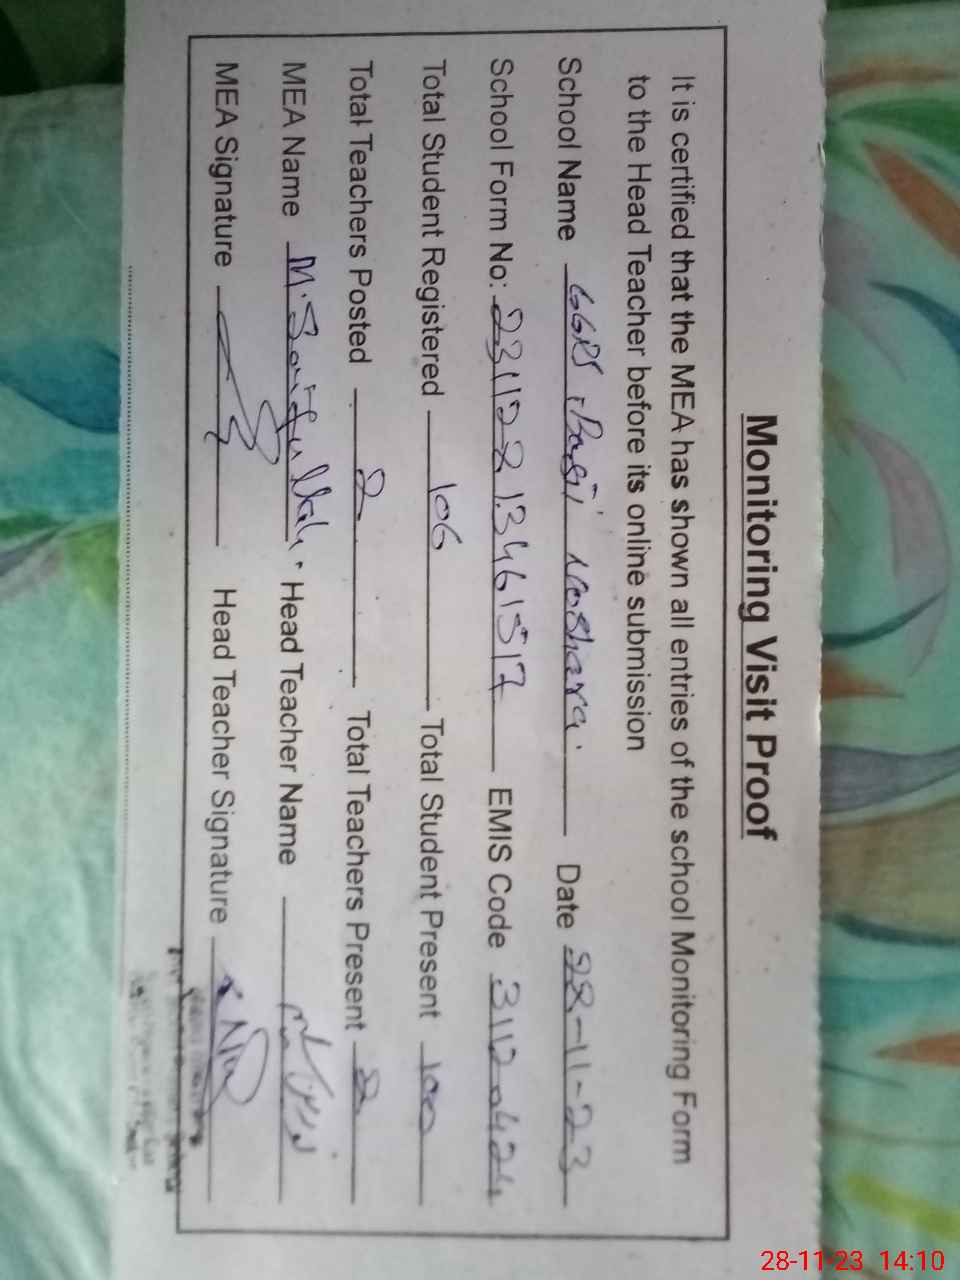 Monitoring Visit Proof
It is certified that the MEA has shown all entries of the school Monitoring Form
to the Head Teacher before its online submission
School Name Noshera. Date 28-11-23
School Form No: 23112213461517 EMIS Code 31120424
Total Student Registered 106 Total Student Present 100
Total Teachers Posted 2 Total Teachers Present 2
MEA Name M. Head Teacher Name
MEA Signature Head Teacher Signature
28-11-23 14:10